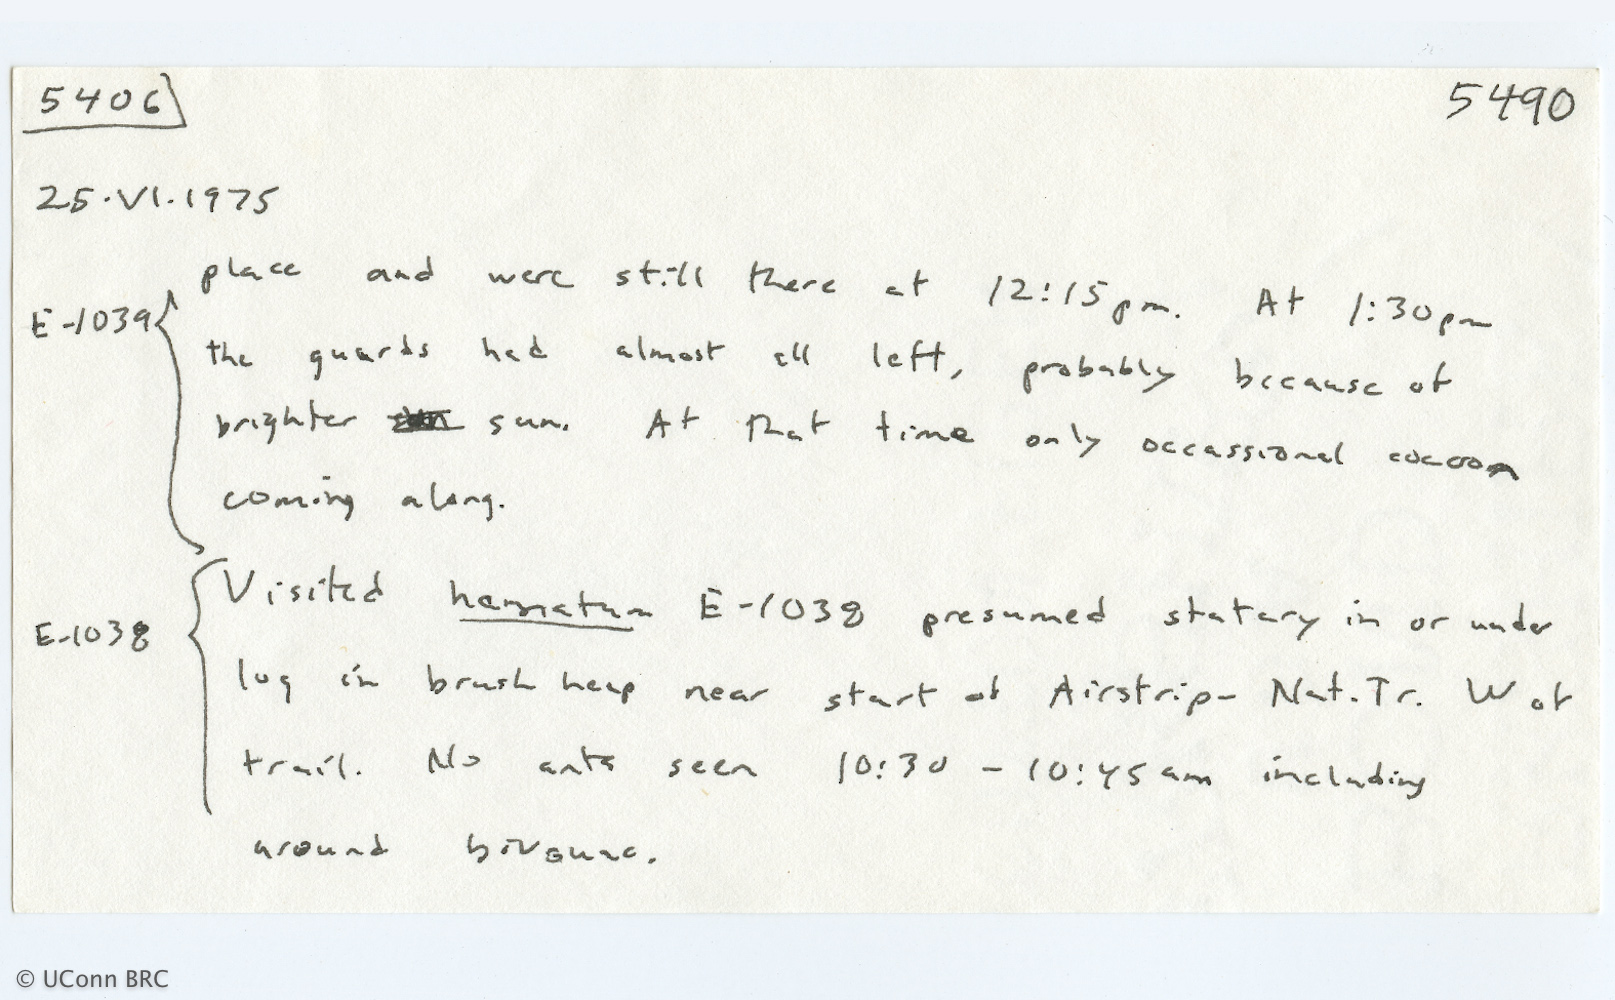 5406
5490
25.VI.1975
place and were still there at 12:15pm. At 1:30pm
E-1039
the guards had almost all left, probably because of
brighter sun. At that time only occassional cocoon
coming along.
Visited hamatum E-1038 presumed statary in or under
E-1038
log in brush heap near start of Airstrip- Nat.Tr. W of
trail. No ants seen 10:30 - 10:45am including
around bivouac.
© UConn BRC